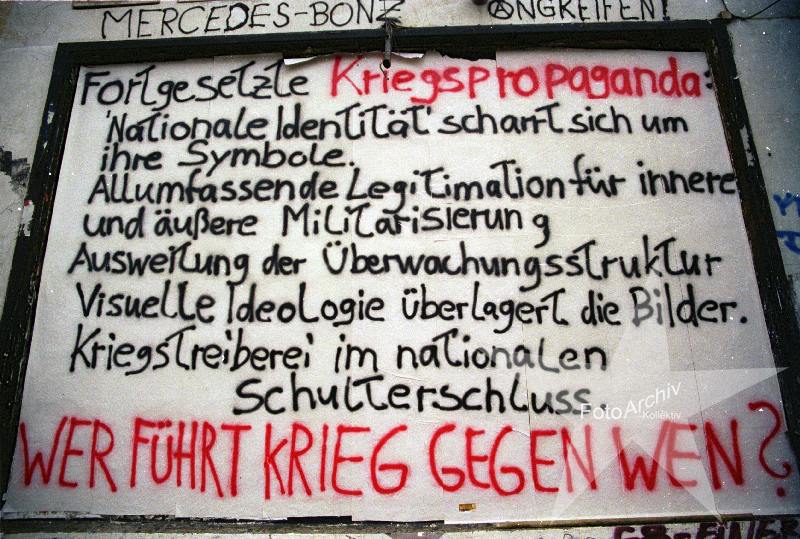 MERCEDES-BONZ ANGREIFEN!
Fortgesetzte Kriegspropaganda:
'Nationale Identität' scharrt sich um
ihre Symbole.
Allumfassende Legitimation für innere
und äußere Militarisierung
Ausweitung der Überwachungsstruktur
Visuelle Ideologie überlagert die Bilder.
Kriegstreiberei im nationalen
Schulterschluss.
FotoArchiv
Kollektiv
WER FÜHRT KRIEG GEGEN WEN?